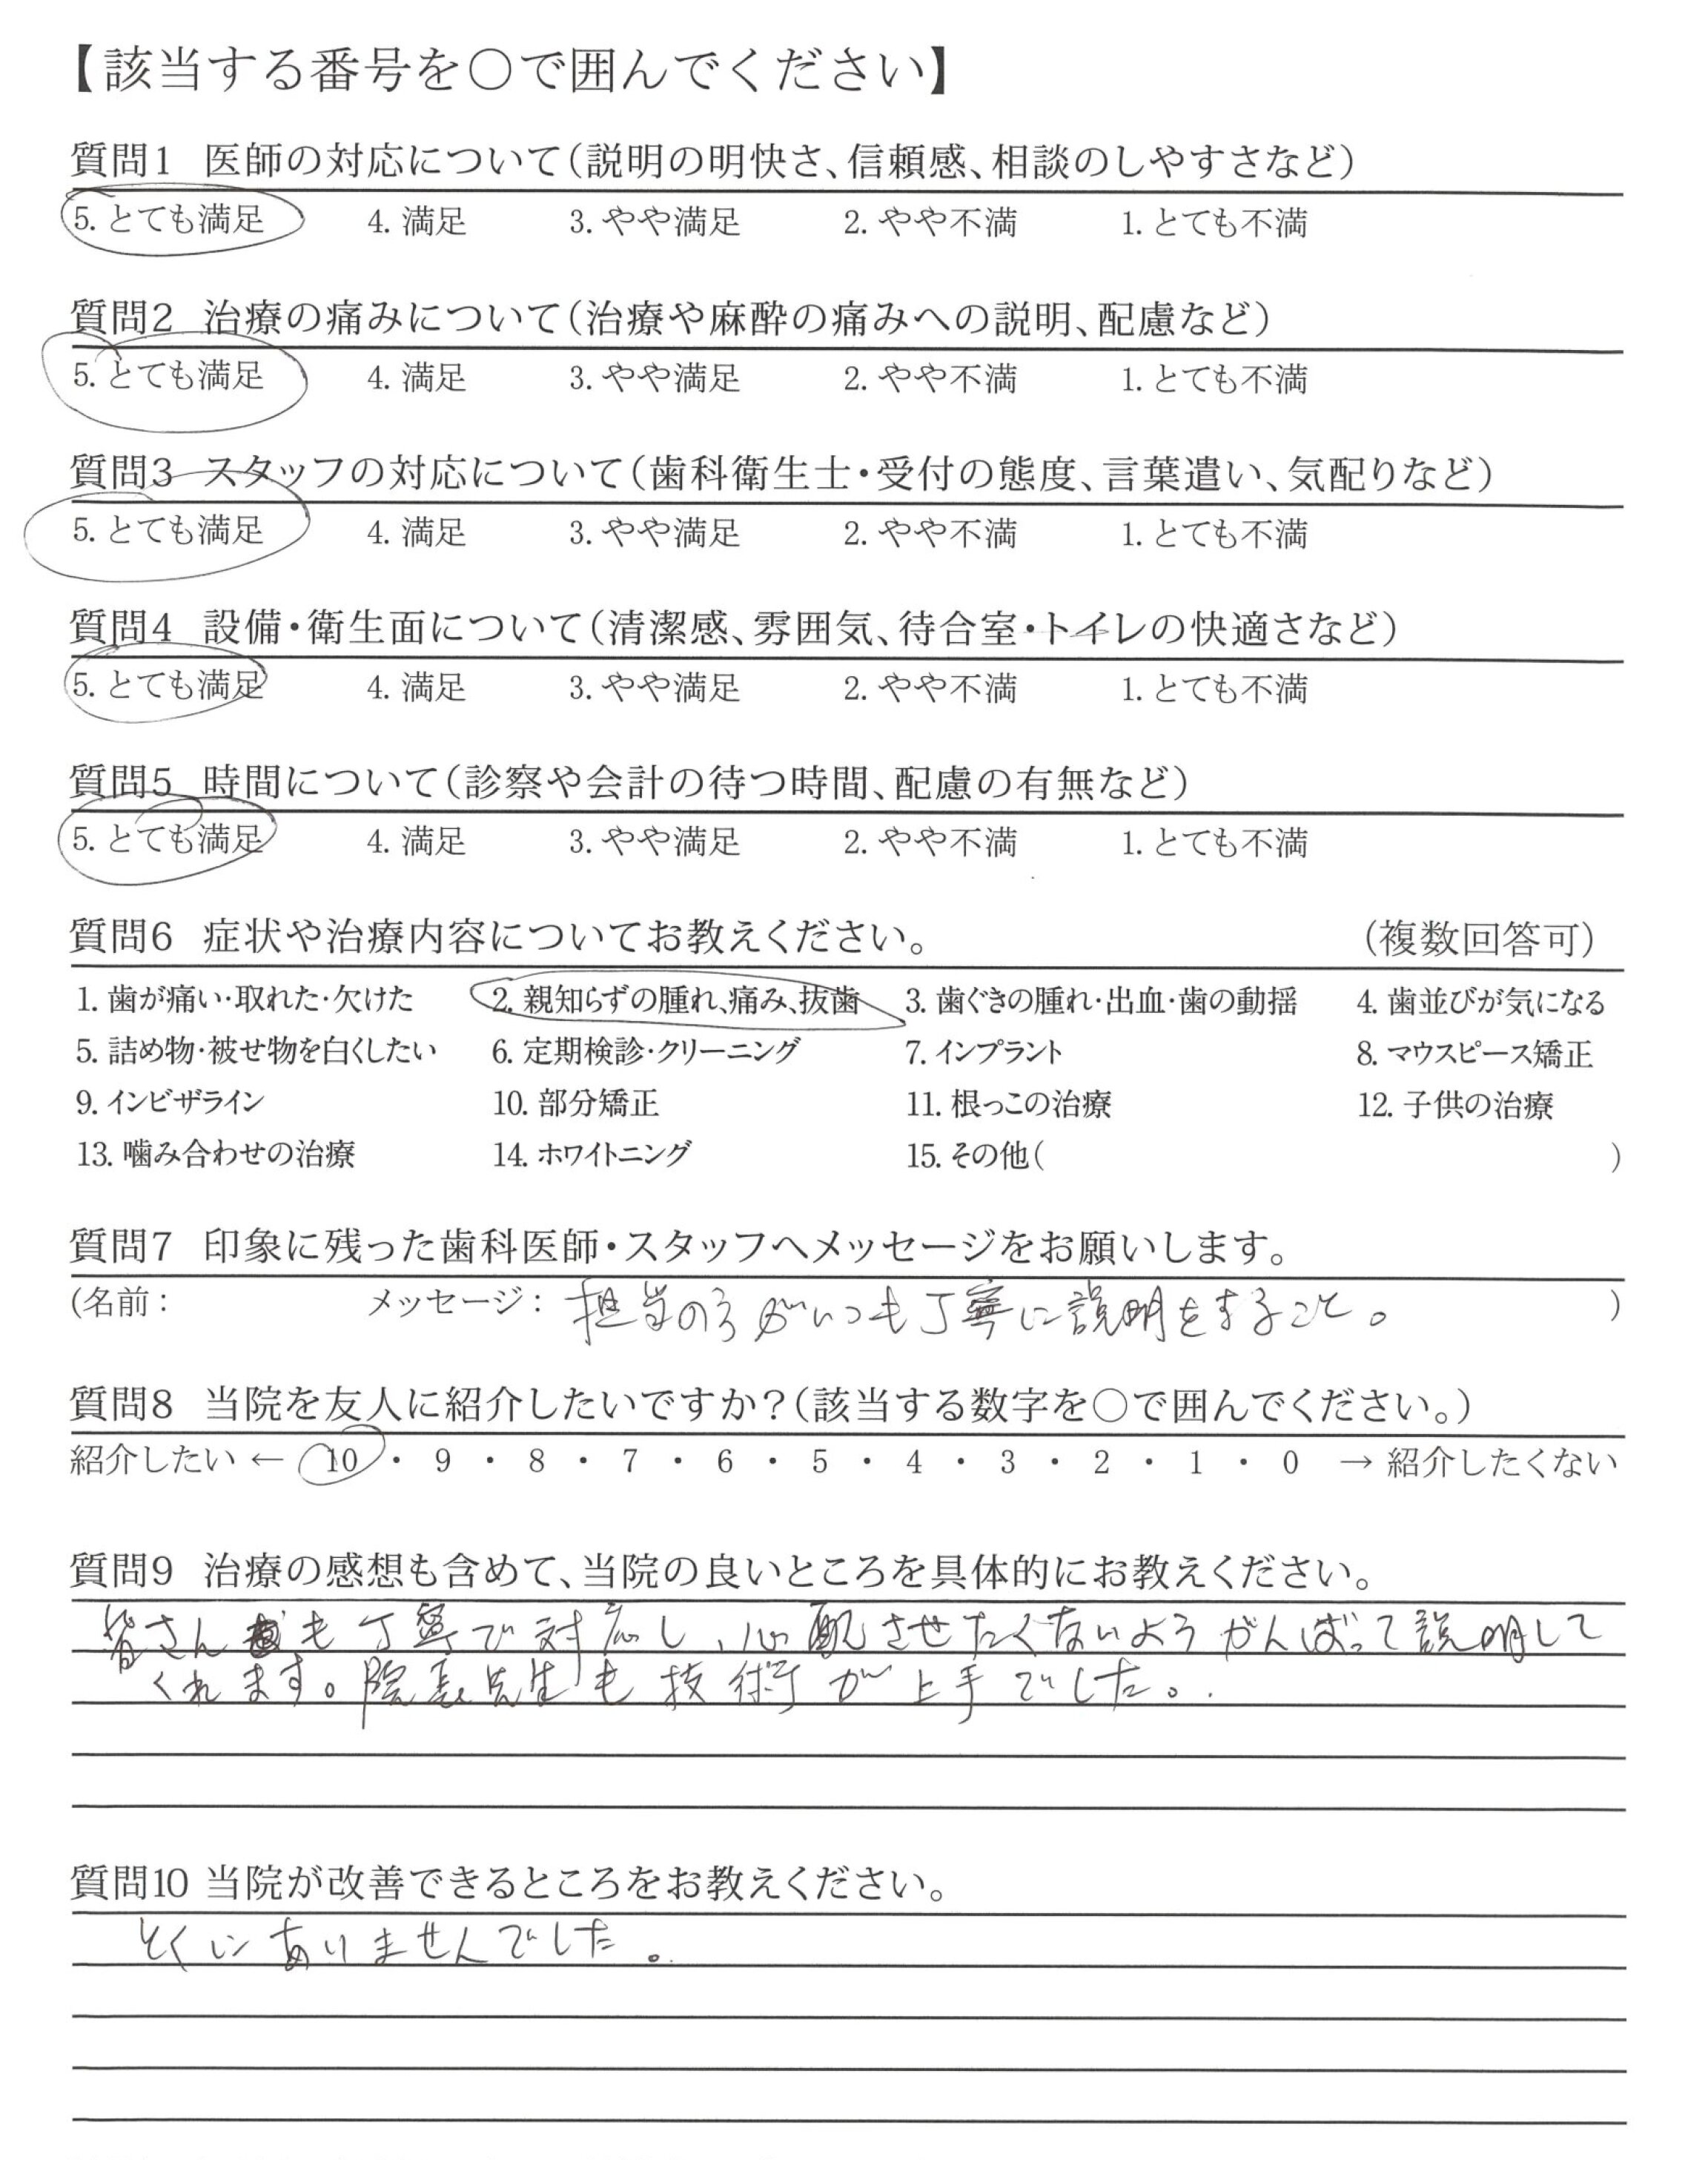 【該当する番号を○で囲んでください】
質問1 医師の対応について(説明の明快さ、信頼感、相談のしやすさなど)
5. とても満足 4. 満足 3. やや満足 2. やや不満 1. とても不満
質問2 治療の痛みについて(治療や麻酔の痛みへの説明、配慮など)
5. とても満足 4. 満足 3. やや満足 2. やや不満 1. とても不満
質問3 スタッフの対応について(歯科衛生士・受付の態度、言葉遣い、気配りなど)
5. とても満足 4. 満足 3. やや満足 2. やや不満 1. とても不満
質問4 設備・衛生面について(清潔感、雰囲気、待合室・トイレの快適さなど)
5. とても満足 4. 満足 3. やや満足 2. やや不満 1. とても不満
質問5 時間について(診察や会計の待つ時間、配慮の有無など)
5. とても満足 4. 満足 3. やや満足 2. やや不満 1. とても不満
質問6 症状や治療内容についてお教えください。 (複数回答可)
1. 歯が痛い・取れた・欠けた 2. 親知らずの腫れ、痛み、抜歯 3. 歯ぐきの腫れ・出血・歯の動揺 4. 歯並びが気になる
5. 詰め物・被せ物を白くしたい 6. 定期検診・クリーニング 7. インプラント 8. マウスピース矯正
9. インビザライン 10. 部分矯正 11. 根っこの治療 12. 子供の治療
13. 噛み合わせの治療 14. ホワイトニング 15. その他( )
質問7 印象に残った歯科医師・スタッフへメッセージをお願いします。
(名前: メッセージ: 担当の方がいつも丁寧に説明をすること。 )
質問8 当院を友人に紹介したいですか?(該当する数字を○で囲んでください。)
紹介したい ← 10 ・ 9 ・ 8 ・ 7 ・ 6 ・ 5 ・ 4 ・ 3 ・ 2 ・ 1 ・ 0 → 紹介したくない
質問9 治療の感想も含めて、当院の良いところを具体的にお教えください。
皆さんも丁寧で対応し、心配させたくないようがんばって説明して
くれます。院長先生も技術が上手でした。
質問10 当院が改善できるところをお教えください。
とくにありませんでした。